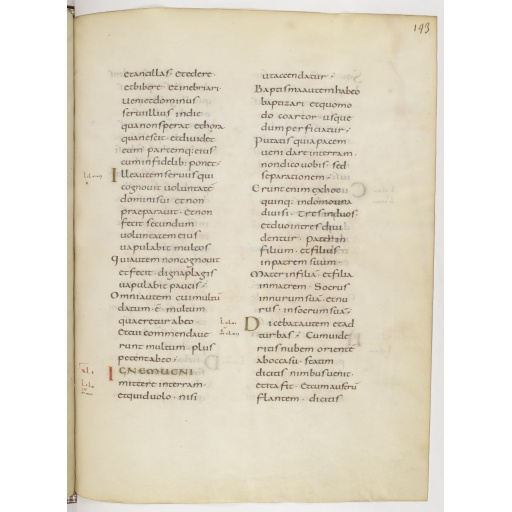 193
et ancillas · et edere ·
et bibere · et inebriari ·
ueniet dominus
serui illius in die
qua non sperat · et hora
qua nescit · et diuidet
eum · partemq; eius
cum infidelib; ponet ·
Ille autem seruus qui
cognouit uoluntatē
domini sui · et non
praeparauit · et non
fecit secundum
uoluntatem eius
uapulabit multis
Qui autem non cognouit
et fecit · digna plagis
uapulabit paucis ·
Omni autem cui multū
datum · ē · multum
quaeretur ab eo ·
Et cui commendaue
runt multum · plus
petent ab eo ·
IGNEM UENI
mittere in terram ·
et quid uolo · nisi
ut accendatur ·
Baptisma autem habeo
baptizari · et quomo
do coartor · usque
dum perficiatur ·
Putatis quia pacem
ueni dare in terram ·
non dico uobis · sed
separationem ·
Erunt enim ex hoc
quinq; in domo una
diuisi · Tres in duos
et duo in tres diui
dentur · Pater in
filium · et filius
in patrem suum ·
Mater in filiā · et filia
in matrem · Socrus
in nurum suā · et nu
rus · in socrum suā ·
Dicebat autem et ad
turbas · Cum uide
ritis nubem orientē
ab occasu · statim
dicitis nimbus uenit ·
et ita fit · Et cum austrū
flantem · dicitis